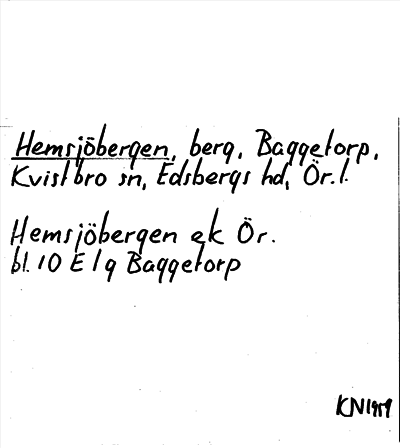 Hemsjöbergen, berg, Baggetorp,
Kvistbro sn, Edsbergs hd, Ör. l.
Hemsjöbergen ek Ör.
bl. 10 E 1 g Baggetorp
KN 1959